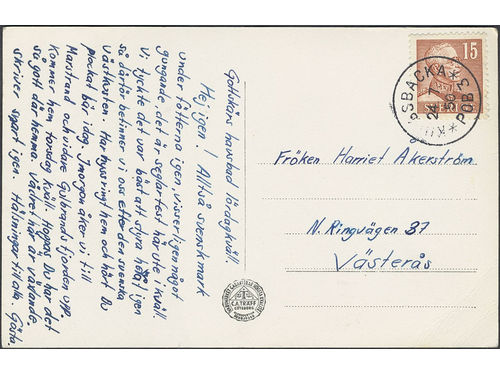 Gottskärs havsbad lördagkväll.
Hej igen! Alltså svensk mark
under fötterna igen, visserligen något
gungande, det är seglarfest här ute i kväll.
Vi tyckte det var bäst att dyra hem igen
så därför befinner vi oss efter den svenska
Västkusten. Har nyss ringt hem och hört Du
plockat bär idag. I morgon åter vi till
Marstrand och vidare Gullbrands fjorden upp.
Kommer hem torsdag kväll. Hoppas Du har det
så gott där hemma. Vädret här är växlande,
skriver snart igen. Hälsningar till alla. Gösta.
15
KUNGSBACKA
24 50
PÅB 3
SVERIGE
Fröken Harriet Akerström
N. Ringvägen 37
Västerås
C.A. TRÄFF
GÖTEBORG